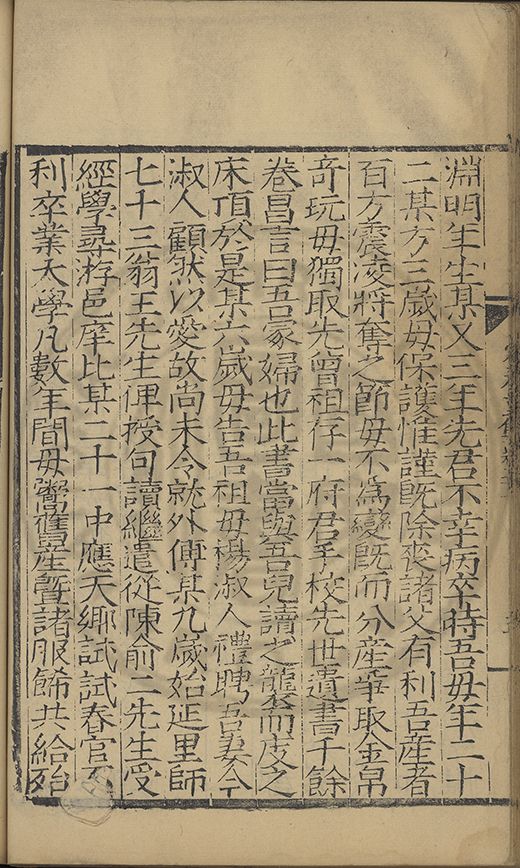 淵明年生某又三年先君不幸病卒時吾毋年二十
二某方三歲毋保護惟謹既除喪諸父有利吾產者
百方震凌將奪之節毋不為變既而分產爭取金帛
奇玩毋獨取先曾祖存一府君手校先世遺書千餘
卷昌言曰吾家婦也此書當與吾兒讀之籠而庋之
床頂於是某六歲毋告吾祖毋楊淑人禮聘吾妻今
淑人顧然以愛故尚未令就外傅某九歲始延里師
七十三翁王先生俾授句讀繼遣從陳俞二先生受
經學尋游邑庠比某二十一中應天鄉試試春官不
利卒業太學凡數年間毋鬻舊產暨諸服飾共給殆